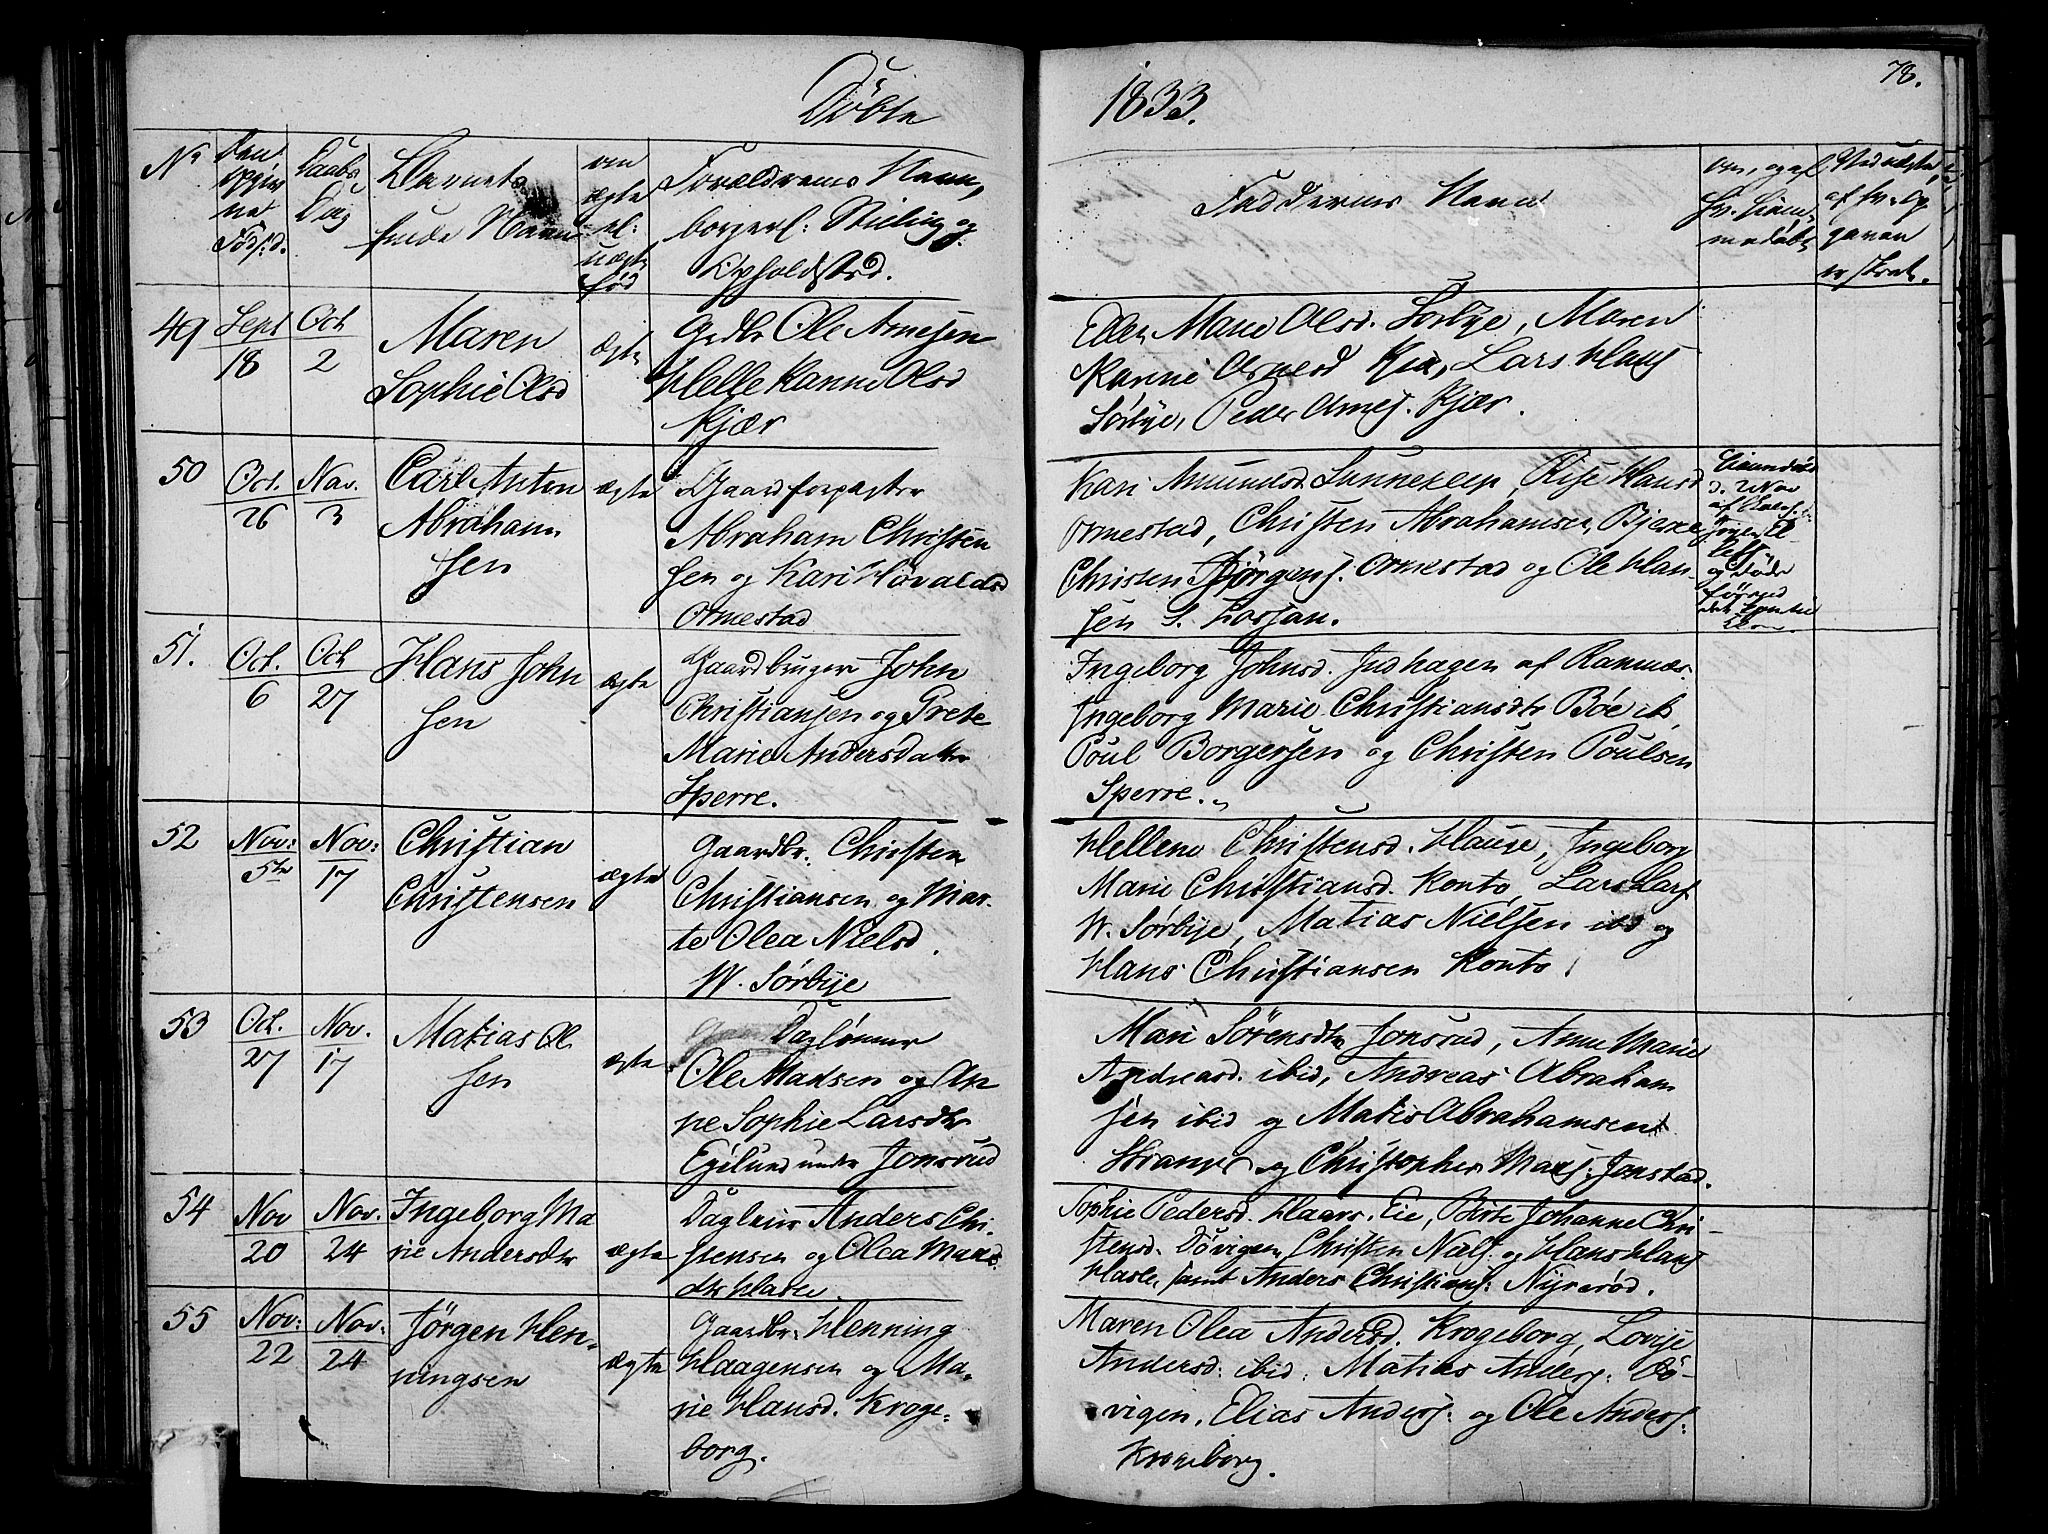 Döbte
1833.
78.
No
Daabs
Dag
Barnets
fulde Navn
om
ægte
el:
uægte
fød
Forældrenes Navn,
borgerl: Stilling og
Opholdssted.
Faddernes Navn
49
Sept
18
Oct
2
Maren
Sophie Olsd
ægte
Grdbr Ole Arnesen
Helle Karine Olsd
Kjær
Marie Olsd. Sörbye, Maren
Karine Arnesd Kjær, Lars Hans
Sörbye, Peder Arnes. Kjær.
50
Oct.
26
Nov.
3
Carl Anton
Abraham
sen
ægte
Gaardforpagter
Abraham Christen
sen og Kari Hovalds
Ormestad
Kari Amunds Sunneklep, Else Hansd
Ormestad, Christen Abrahamsen Bjerke
Christen Jörgens. Ormestad og Ole Han-
sen S.
51.
Oct.
6
Oct
27
Hans John
sen
ægte
Gaardbruger John
Christiansen og Grete
Marie Andersdatter
Sperre.
Ingeborg Johnsd. Indhagen af Ramnæs
Ingeborg Marie Christiansdtr Böe ib,
Poul Borgersen og Christen Poulsen
Sperre.
52
Nov:
5te
Nov:
17
Christian
Christensen
ægte
Gaardbr. Christen
Christiansen og Mar-
te Olea Nielsd.
W. Sörbye
Hellene Christensd. Hause, Ingeborg
Marie Christiansd. Konto, Lars Lars
W. Sörbye, Matias Nielsen ibd og
Hans Christiansen Konto.
53
Oct.
27
Nov.
17
Matias Ol
sen
ægte
Daglønner
Ole Madsen og An
ne Sophie Larsdtr
Egilund under Jonsrud
Mari Sörensdtr Jonsrud, Anne Marie
Andreasd. ibid, Andreas Abraham
sen ibid og Matis Abrahamsen
og Christopher Mads: Jonsrud.
54
Nov
20
Nov.
24
Ingeborg Ma
rie Andersdtr
ægte
Dagleier Anders Chri-
stensen og Olea Mads
dtr Hasle.
Sophie Pedersd. Haavs. Eie, Birte Johanne Chri-
stensd. Dövigen, Christen Niels. og Hans Hans
Hasle, samt Anders Christians: Nyreröd.
55
Nov:
22
Nov:
24
Jörgen Hen-
ningsen
ægte
Gaardbr: Henning
Haagensen og Ma-
rie Hansd. Kroge-
borg.
Maren Olea Andersd. Krogeborg, Lovise
Andersd. ibid. Matias Anders: Dö-
vigen, Elias Anders: og Ole Anders:
Krogeborg.